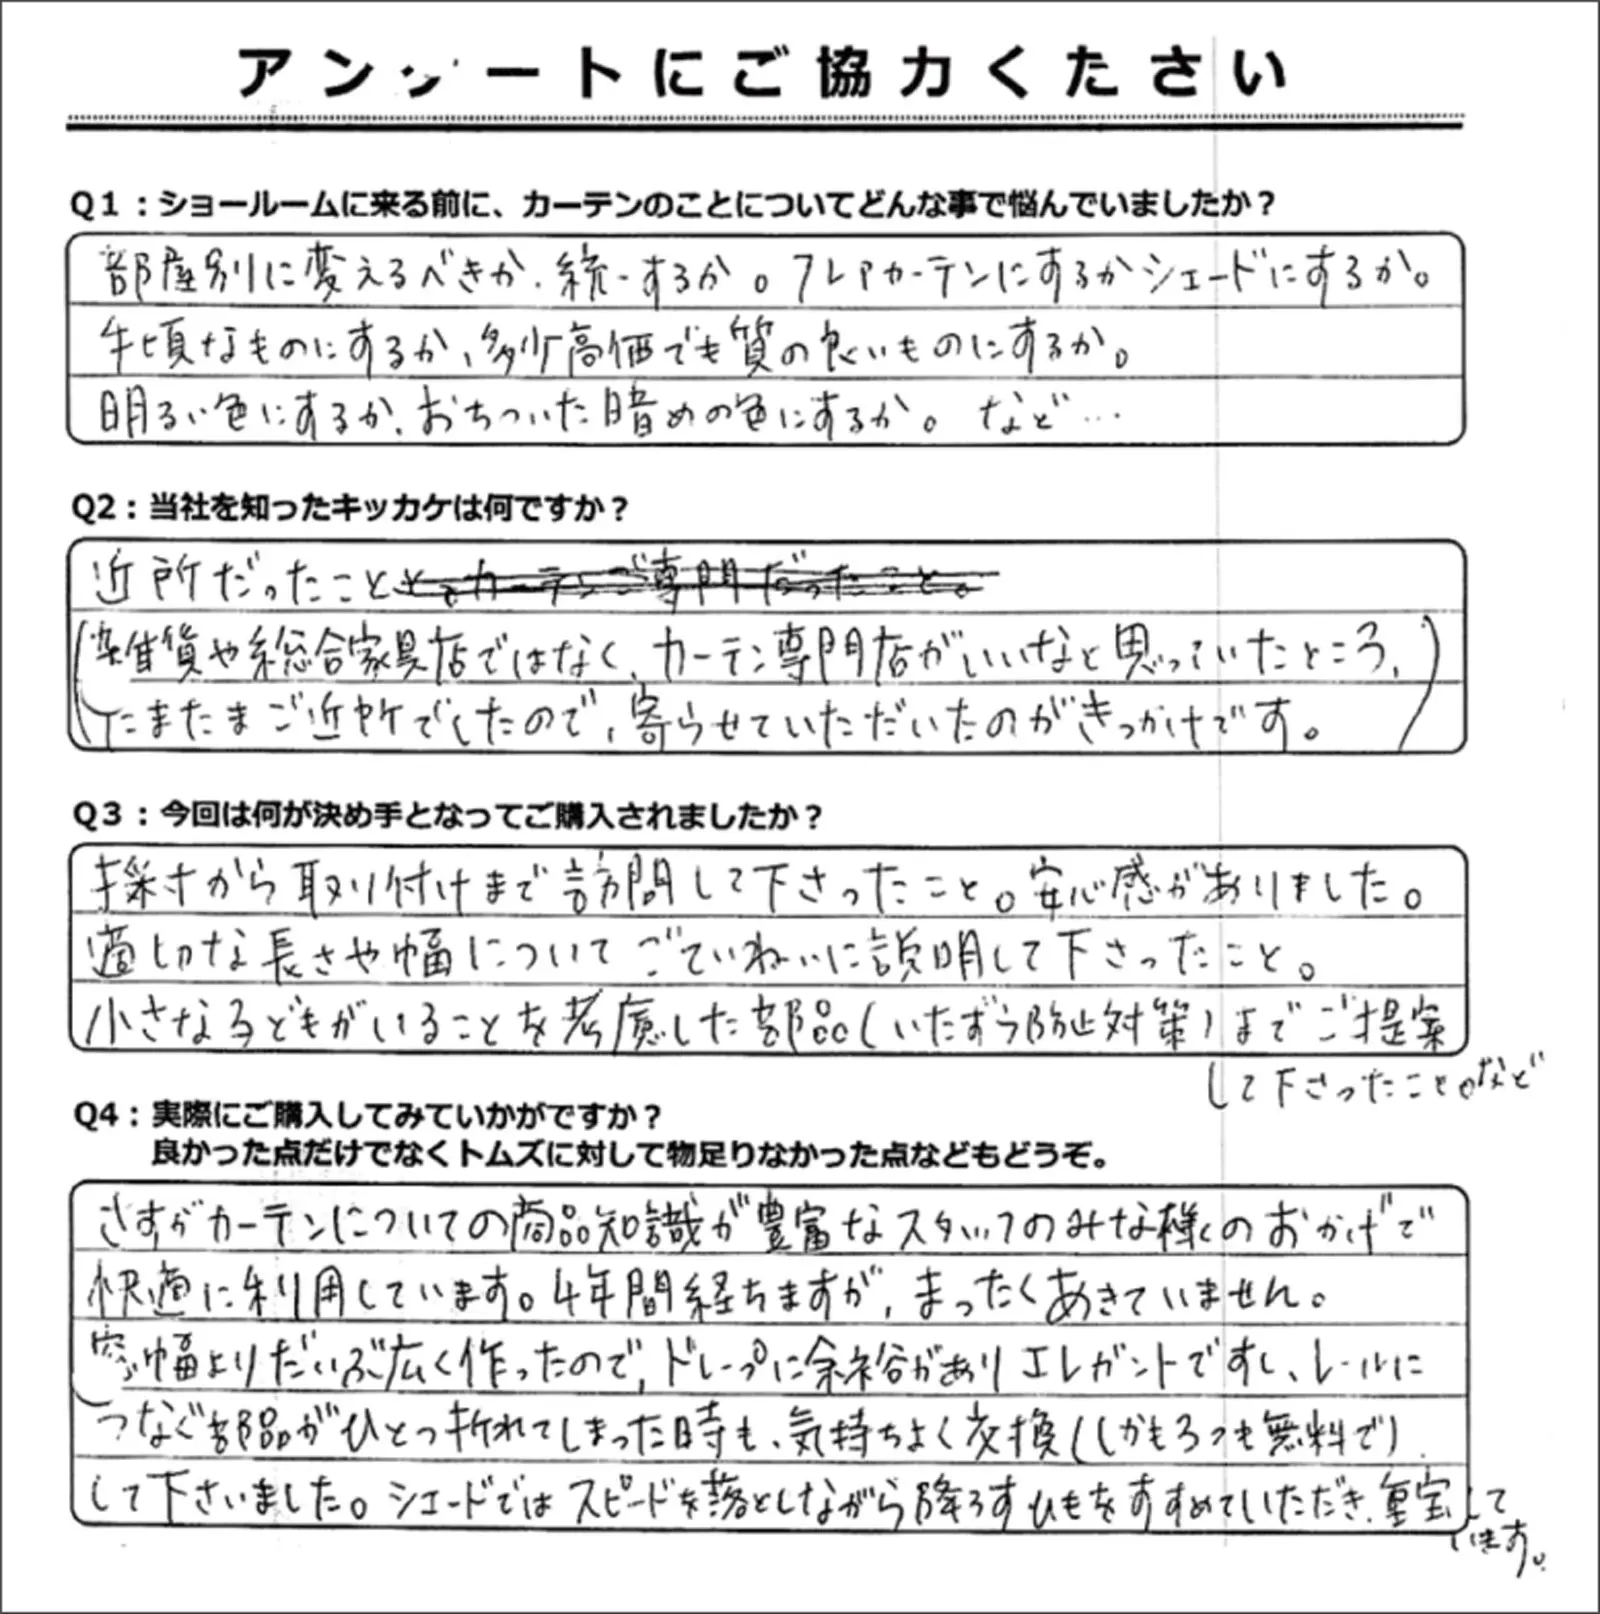 アンケートにご協力ください
Q1：ショールームに来る前に、カーテンのことについてどんな事で悩んでいましたか？
部屋別に変えるべきか、統一するか。フレアカーテンにするかシェードにするか。
手頃なものにするか、多少高価でも質の良いものにするか。
明るい色にするか、おちついた暗めの色にするか。 など…
Q2：当社を知ったキッカケは何ですか？
近所だったことと、カーテンご専門だったこと。
(雑貨や総合家具店ではなく、カーテン専門店がいいなと思っていたところ、
たまたまご近所でしたので、寄らせていただいたのがきっかけです。)
Q3：今回は何が決め手となってご購入されましたか？
採寸から取り付けまで訪問して下さったこと。安心感がありました。
適切な長さや幅について ごていねいに説明して下さったこと。
小さな子どもがいることを考慮した部品(いたずら防止対策)までご提案
して下さったこと。など
Q4：実際にご購入してみていかがですか？
良かった点だけでなくトムズに対して物足りなかった点などもどうぞ。
さすがカーテンについての商品知識が豊富なスタッフのみな様のおかげで
快適に利用しています。4年間経ちますが、まったくあきていません。
窓幅よりだいぶ広く作ったので、ドレープに余裕がありエレガントですし、レールに
つなぐ部品がひとつ折れてしまった時も、気持ちよく交換(しかも3つも無料で)
して下さいました。シェードではスピードを落としながら降ろすひもをすすめていただき、重宝して
います。